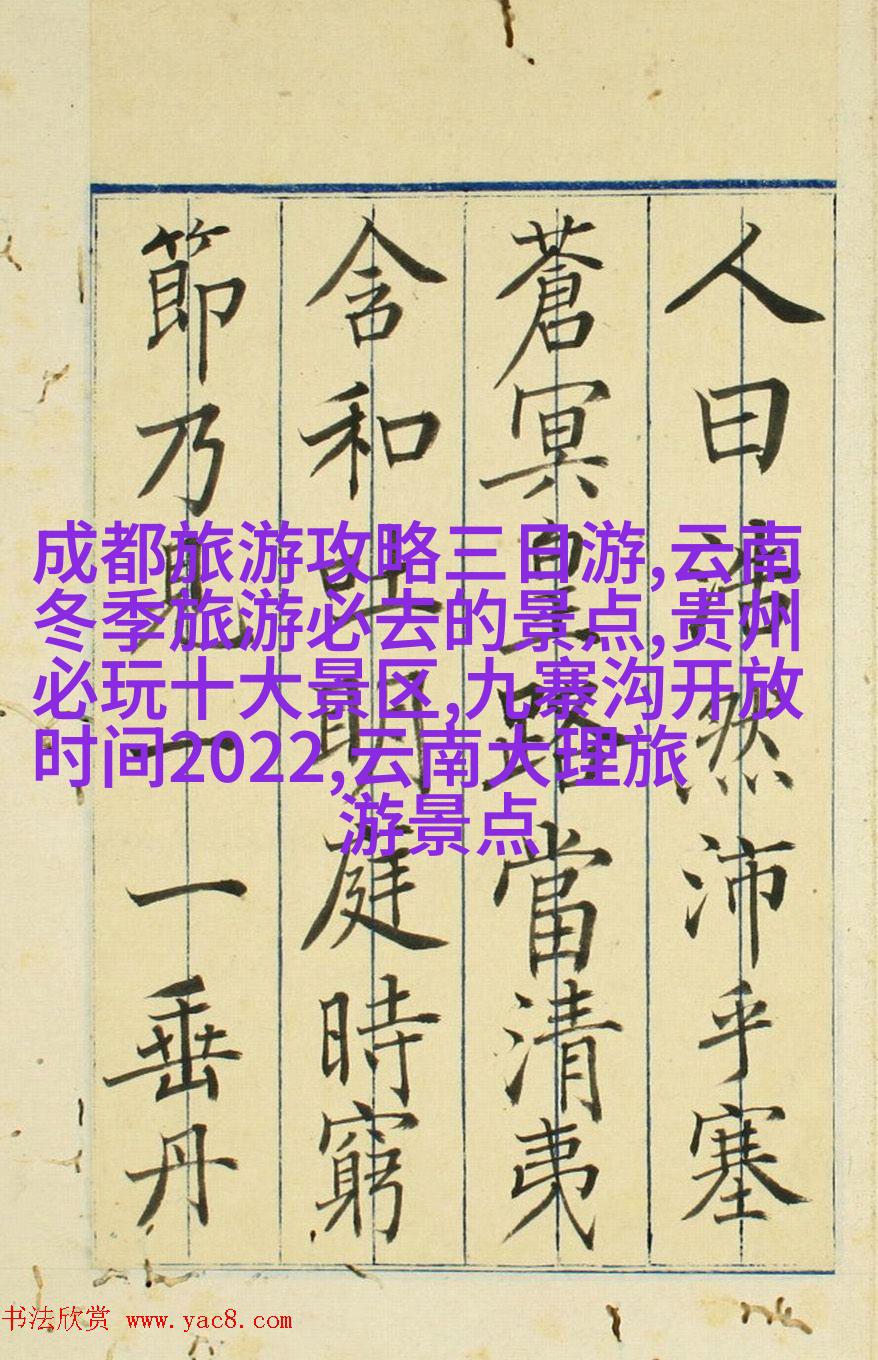 人曰浩然沛乎塞
蒼冥皇路當清夷
含和吐明庭時窮
節乃見一一垂丹
成都旅游攻略三日游,云南
冬季旅游必去的景点,贵州
必玩十大景区,九寨沟开放
时间2022,云南大理旅
游景点
书法欣赏 www.yac8.com